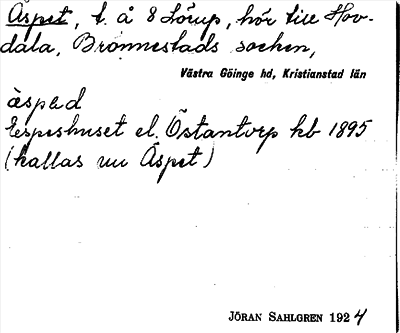 Äspet, t. å 8 Lörup, hör till Hov-
dala, Brönnestads socken,
Västra Göinge hd, Kristianstad län
äspəd
Espeshuset el. Östantorp hb 1895
(kallas nu Äspet)
JÖRAN SAHLGREN 1924